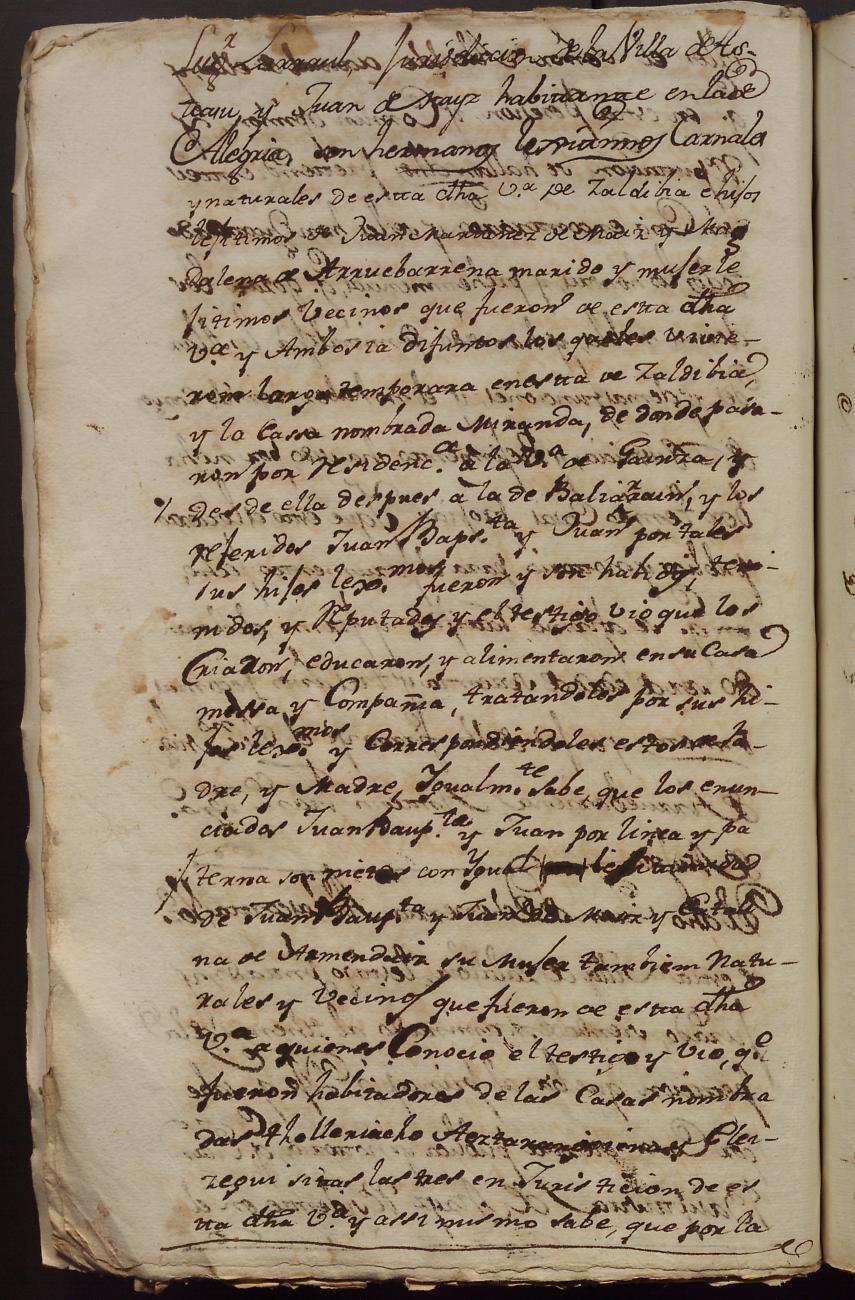 Lugr Larraul Jurisdicion de la Villa de As-
teasu, y Juan de Maiz habitante en la de
Alegria, son hermanos lexitimos Carnales
y naturales de estta dha V.a de Zaldibia e hijos
lejitimos de Juan Martinez de Maiz y Mag
dalena de Arruebarrena marido y mujer le
jitimos Vecinos que fueron de estta dha
V.a y Ambos ia difuntos los quales vivie-
ron largo temporara en estta de Zaldibia,
y la Cassa nombrada Miranda, de donde pasa-
ron por residenc.a a la V.a de Gainza, y
desde ella despues a la de Baliarrain, y los
referidos Juan Bap.ta y Juan por tales
sus hijos lexmos fueron y son habidos, teni-
dos, y Reputados y el testigo vio que los
Criaron, educaron, y alimentaron en su Casa
messa y Compañia, tratandolos por sus hi-
jos lexmos y Correspondiendoles estos de Pa-
dre, y Madre, Igualm.te sabe, que los enun-
ciados Juan Baup.ta y Juan por linea y pa
terna son nietos con Igual lejitimidad
de Juan Baup.ta y Juan de Maiz y Catali
na de Armendariz su Muger tambiem Natu-
rales y Vecinos que fueron de estta dha
V.a a quienes Conocio el testigo y vio, q.e
fueron habitadores de las Casas nombra
das Elei-
zegui sitas las tres en Juristicion de es
tta dha V.a y assi mismo sabe, que por la